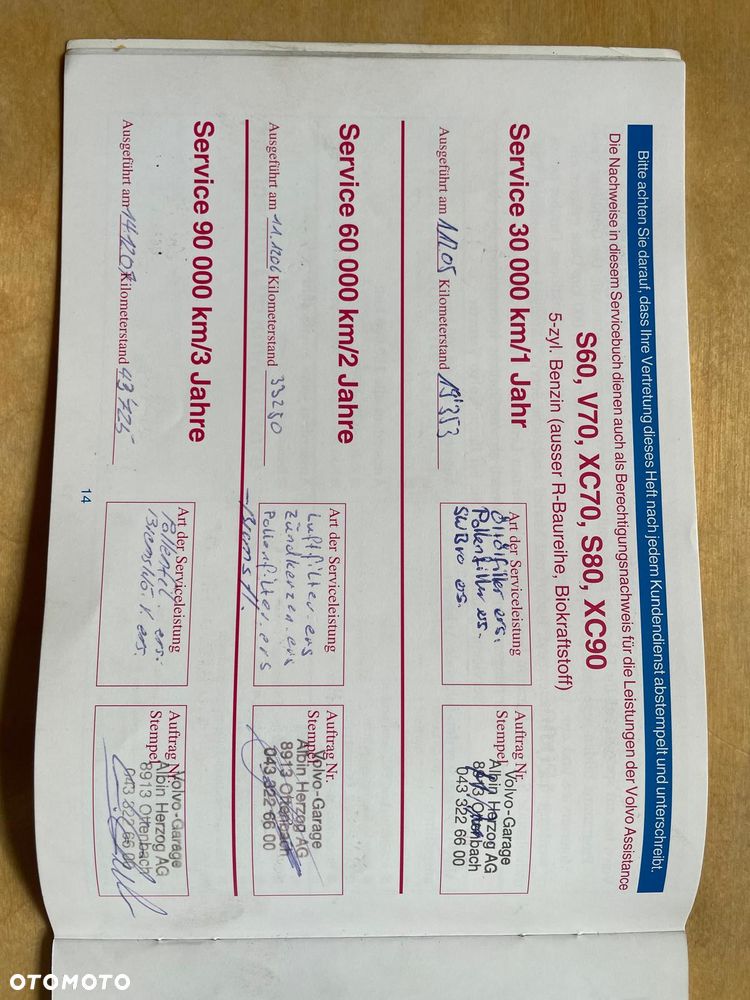 Bitte achten Sie darauf, dass Ihre Vertretung dieses Heft nach jedem Kundendienst abstempelt und unterschreibt.
Die Nachweise in diesem Servicebuch dienen auch als Berechtigungsnachweis für die Leistungen der Volvo Assistance
S60, V70, XC70, S80, XC90
5-zyl. Benzin (ausser R-Baureihe, Biokraftstoff)
Service 30 000 km/1 Jahr
Ausgeführt am 1.12.05 Kilometerstand 19'353
Art der Serviceleistung
Öl Ölfilter ers.
Pollenfilter ers.
ers.
Auftrag Nr.
Stempel
Volvo-Garage
Albin Herzog AG
8913 Ottenbach
043 322 66 00
Service 60 000 km/2 Jahre
Ausgeführt am 11.1206 Kilometerstand 33280
Art der Serviceleistung
Luftfilter ers
Zündkerzen ers
Pollenfilter ers
Auftrag Nr.
Stempel
Volvo-Garage
Albin Herzog AG
8913 Ottenbach
043 322 66 00
Service 90 000 km/3 Jahre
Ausgeführt am 14.12.07 Kilometerstand 43725
Art der Serviceleistung
ers.
ers.
Auftrag Nr.
Stempel
Volvo-Garage
Albin Herzog AG
8913 Ottenbach
043 322 66 00
14
OTOMOTO